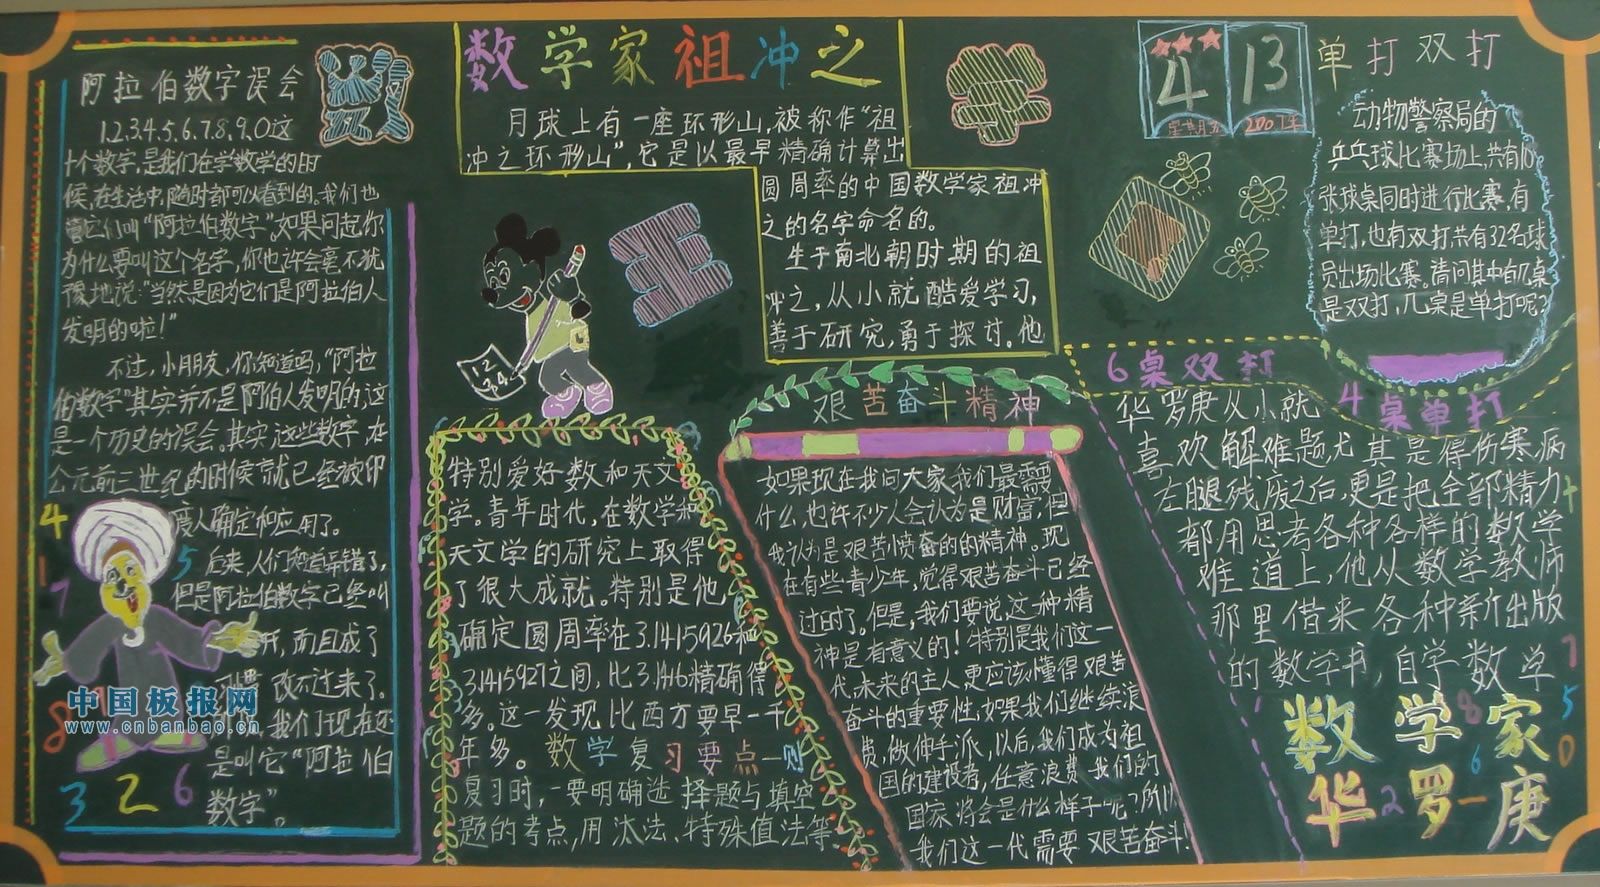 阿拉伯数字误会
1.2.3.4.5.6.7.8.9.0这
十个数字,是我们在学数学的时
候,在生活中,随时都可以看到的。我们也
它们叫"阿拉伯数字"。如果问起你
为什么要叫这个名字,你也许会毫不犹
豫地说:"当然是因为它们是阿拉伯人
发明的啦!"
不过,小朋友,你知道吗,"阿拉
伯数字"其实并不是阿伯人发明的这
是一个历史的误会。其实这些数字,在
公元前三世纪的时候就已经被印
度人确定和应用了。
后来,人们知道弄错了,
但是阿拉伯数字已经叫
开,而且成了
习惯 改不过来了。
我们现在还
是叫它"阿拉伯
数字"。
4
5
1
7
8
3 2 6
中国板报网
www.cnbanbao.cn
数学家祖冲之
月球上有一座环形山,被称作"祖
冲之环形山",它是以最早精确计算出
圆周率的中国数学家祖冲
之的名字命名的。
生于南北朝时期的祖
冲之,从小就酷爱学习,
善于研究,勇于探讨。他
特别爱好数和天文
学。青年时代,在数学和
天文学的研究上取得
了很大成就。特别是他
确定圆周率在3.1415926和
3.1415927之间,比3.1416精确得
多。这一发现比西方要早一千
年多。
数学复习要点一则
复习时,一要明确选择题与填空
题的考点,用汰法、特殊值法等
艰苦奋斗精神
如果现在我问大家我们最需要
什么,也许不少人会认为是财富,但
我认为是艰苦愤奋的的精神。现
在有些青少年,觉得艰苦奋斗已经
过时了。但是,我们要说这一种精
神是有意义的!特别是我们这一
代,未来的主人更应该懂得艰苦
奋斗的重要性,如果我们继续浪
费,做伸手派,以后,我们成为祖
国的建设者,任意浪费,我们的
国家将会是什么样子呢?所以
我们这一代需要艰苦奋斗!
4 13
单打双打
动物警察局的
乒乓球比赛场上,共有10
张球桌同时进行比赛,有
单打,也有双打共有32名球
员出场比赛。请问其中的几桌
是双打,几桌是单打呢?
6桌双打
4桌单打
华罗庚从小就
喜欢解难题尤其是得伤寒病
左腿残废之后,更是把全部精力
都用思考各种各样的数学
难道上,他从数学教师
那里借来各种新出版
的数学书,自学数学
数学家
华罗庚